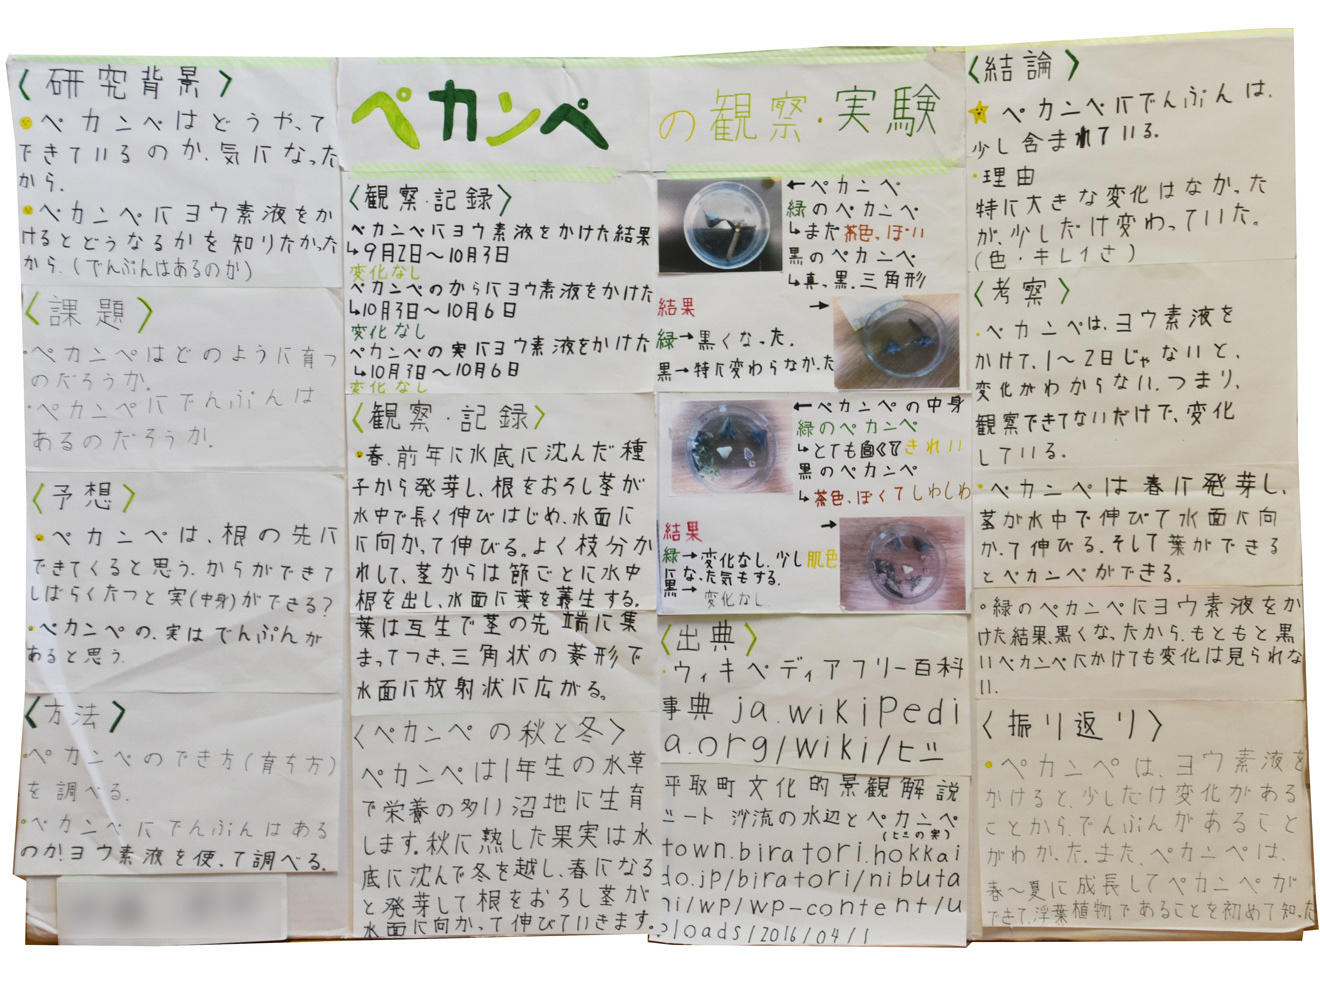 ペカンペの観察・実験
〈研究背景〉
ペカンペはどうやって
できているのか、気になった
から。
ペカンペにヨウ素液をか
けるとどうなるかを知りたかった
から。(でんぷんはあるのか)
〈課題〉
・ペカンペはどのように育つ
のだろうか。
・ペカンペにでんぷんは
あるのだろうか。
〈予想〉
・ペカンペは、根の先に
できてくると思う。からができて
しばらくたつと実(中身)ができる?
・ペカンペの、実はでんぷんが
あると思う。
〈方法〉
・ペカンペのでき方(育ち方)
を調べる。
・ペカンペにでんぷんはある
のか!ヨウ素液を使って調べる。
〈観察・記録〉
ペカンペにヨウ素液をかけた結果
↳9月2日〜10月3日
変化なし
ペカンペのからにヨウ素液をかけた
↳10月3日〜10月6日
変化なし
ペカンペの実にヨウ素液をかけた
↳10月3日〜10月6日
変化なし
〈観察・記録〉
・春、前年に水底に沈んだ種
子から発芽し、根をおろし茎が
水中で長く伸びはじめ、水面に
に向かって伸びる。よく枝分か
れして、茎からは節ごとに水中
根を出し、水面に葉を叢生する。
葉は互生で茎の先端に集
まってつき、三角状の菱形で
水面に放射状に広がる。
〈ペカンペの秋と冬〉
ペカンペは1年生の水草
で栄養の多い沼地に生育
します。秋に熟した果実は水
底に沈んで冬を越し、春になる
と発芽して根をおろし茎が
水面に向かって伸びていきます。
←ペカンペ
緑のペカンペ
↳まだ茶色っぽい
黒のペカンペ
↳真っ黒、三角形
結果 →
緑→黒くなった。
黒→特に変わらなかった
←ペカンペの中身
緑のペカンペ
↳とても白くてきれい
黒のペカンペ
↳茶色っぽくてしわしわ
→
結果
緑→変化なし。少し肌色
になった気もする。
黒→変化なし。
〈出典〉
・ウィキペディアフリー百科
事典 ja.wikipedi
a.org/wiki/ヒシ
平取町文化的景観解説
シート 沙流の水辺とペカンペ
(ヒシの実)
town.biratori.hokkai
do.jp/biratori/nibuta
ni/wp/wp-content/u
ploads/2016/04/1
〈結論〉
ペカンペにでんぷんは、
少し含まれている。
・理由
特に大きな変化はなかった
が、少しだけ変わっていた。
(色・キレイさ)
〈考察〉
・ペカンペは、ヨウ素液を
かけて、1〜2日じゃないと、
変化がわからない。つまり、
観察できてないだけで、変化
している。
・ペカンペは春に発芽し、
茎が水中で伸びて水面に向
かって伸びる。そして葉ができる
とペカンペができる。
・緑のペカンペにヨウ素液をか
けた結果、黒くなったから、もともと黒
いペカンペにかけても変化は見られな
い。
〈振り返り〉
・ペカンペは、ヨウ素液を
かけると、少しだけ変化がある
ことから、でんぷんがあること
がわかった。また、ペカンペは、
春〜夏に成長してペカンペが
できて、浮葉植物であることを初めて知った